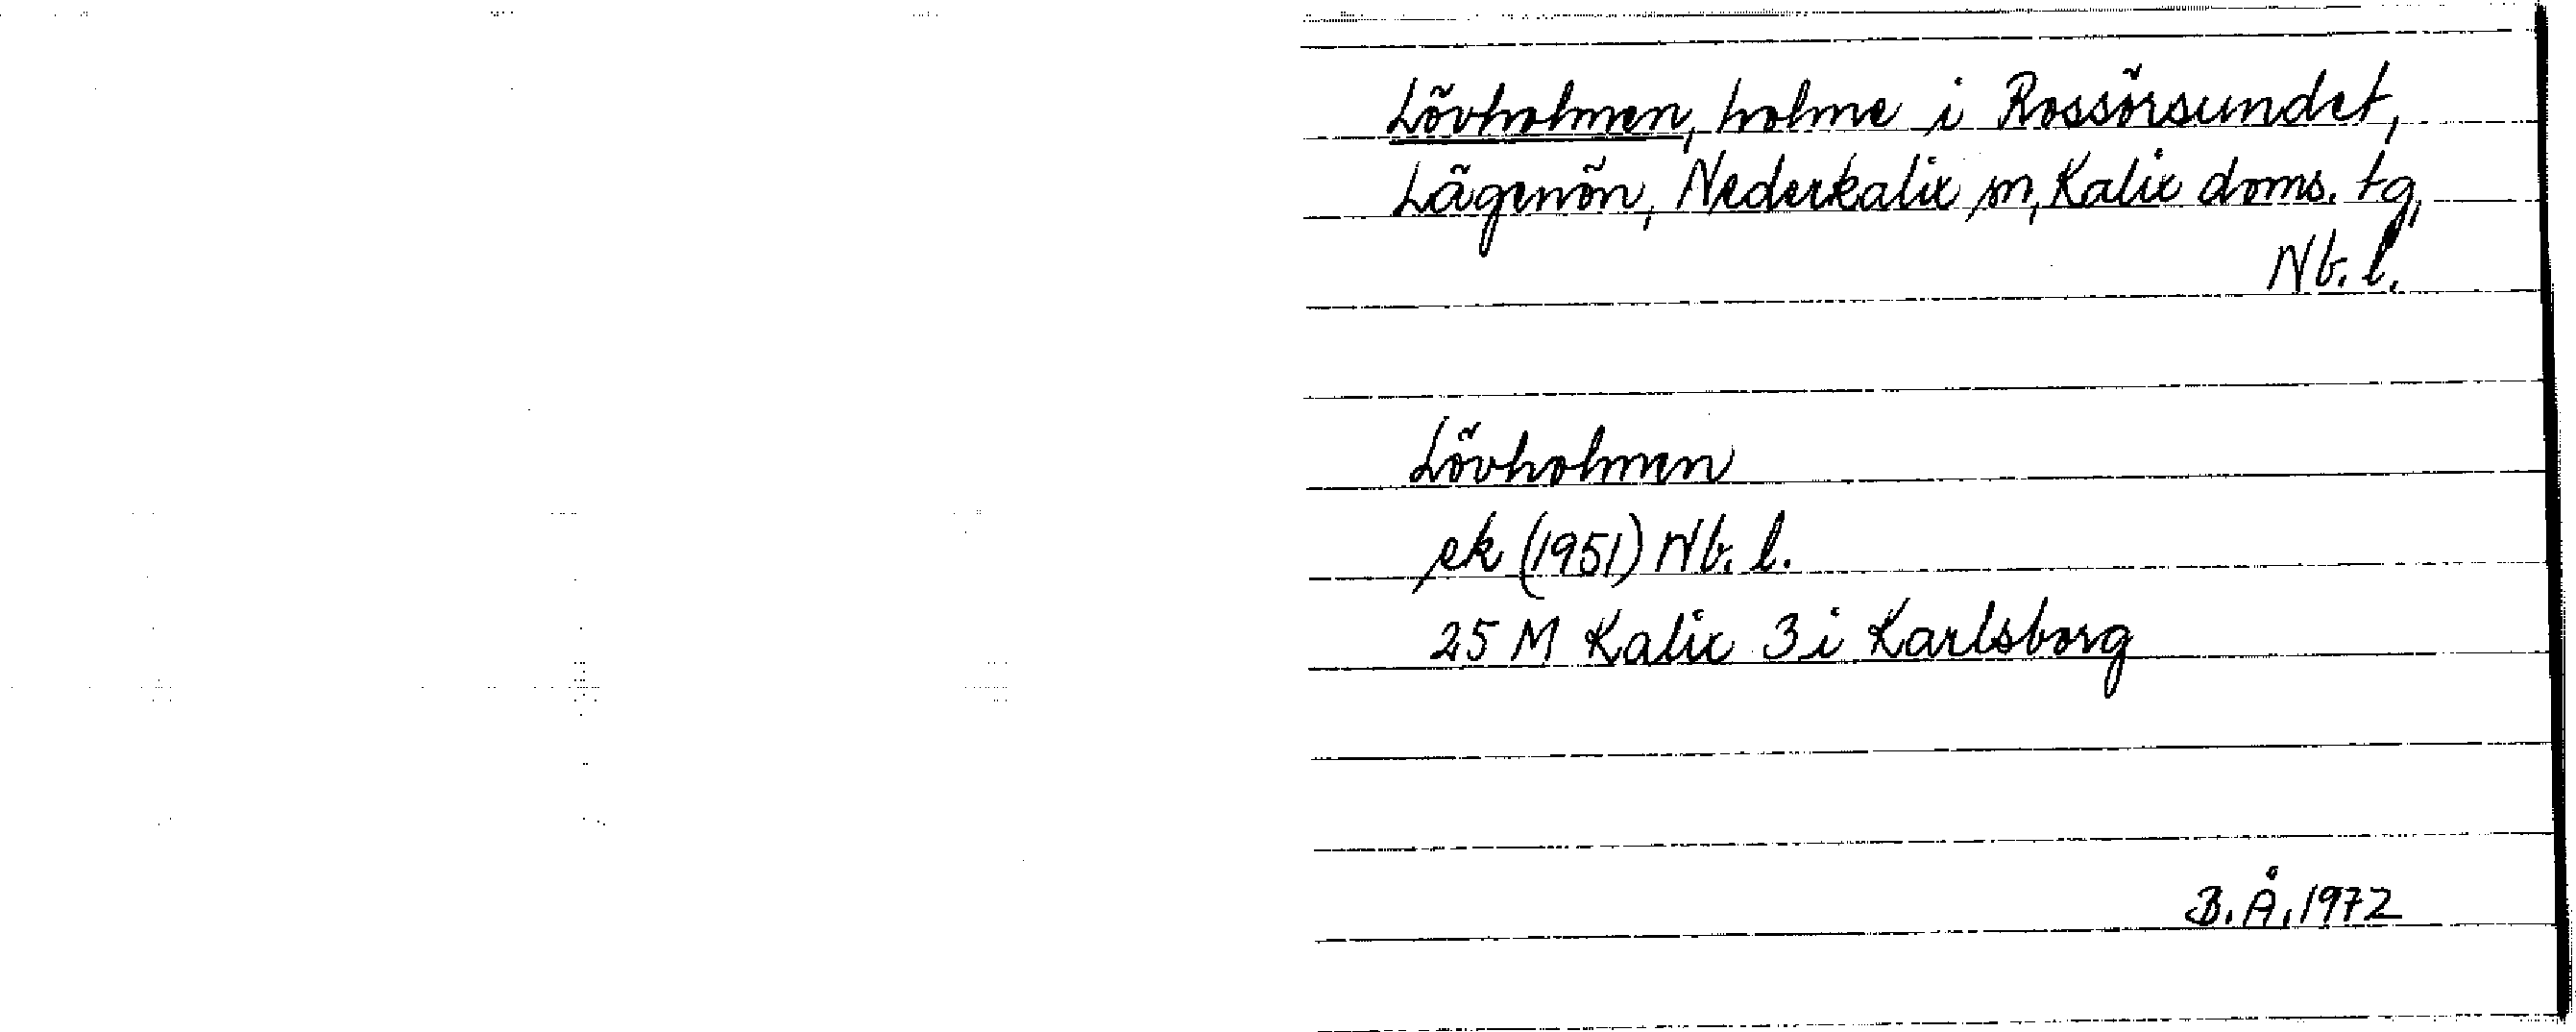 Lövholmen, holme i Rossörsundet,
Lägenön, Nederkalix sn, Kalix doms. tg,
Nb. l.
Lövholmen
ek (1951) Nb. l.
25 M Kalix 3 i Karlsborg
B. Å. 1972